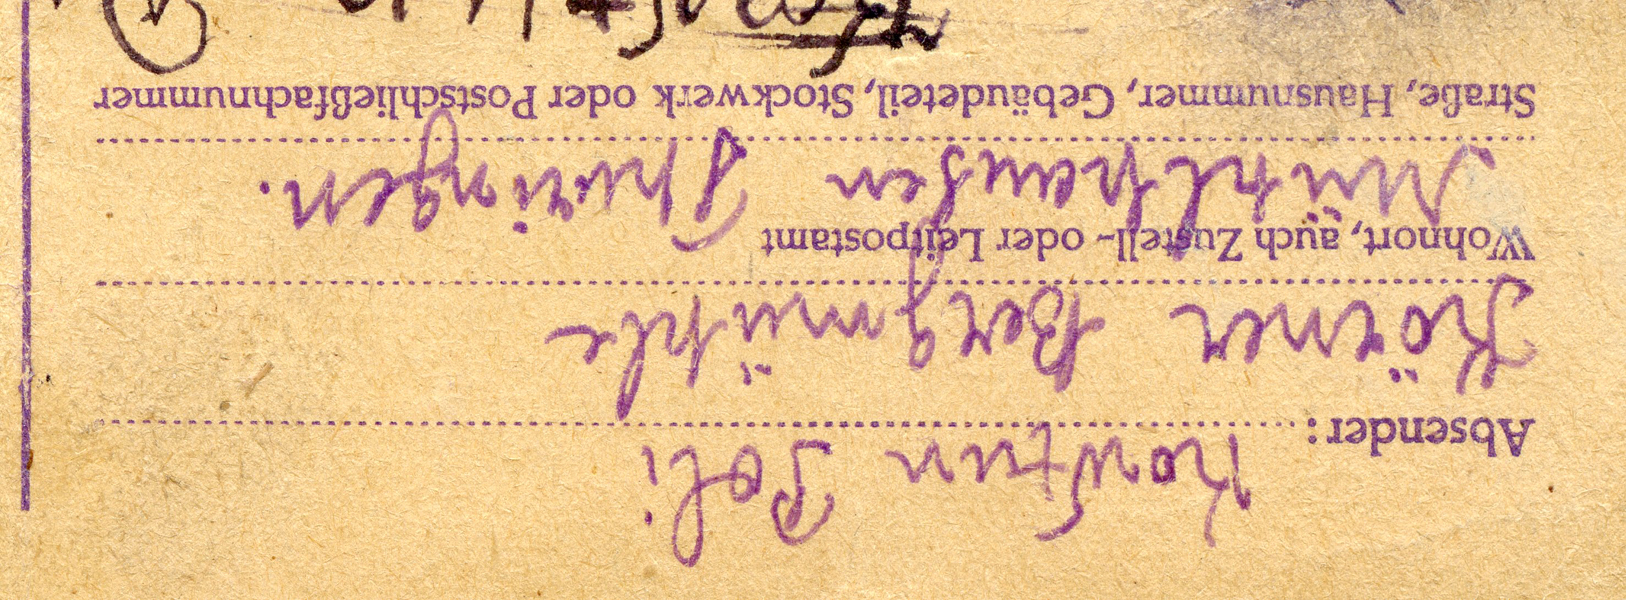 Absender: Kowtun Poli
Körner Bergmühle
Wohnort, auch Zustell- oder Leitpostamt
Mühlhausen Thuringen.
Straße, Hausnummer, Gebäudeteil, Stockwerk oder Postschließfachnummer